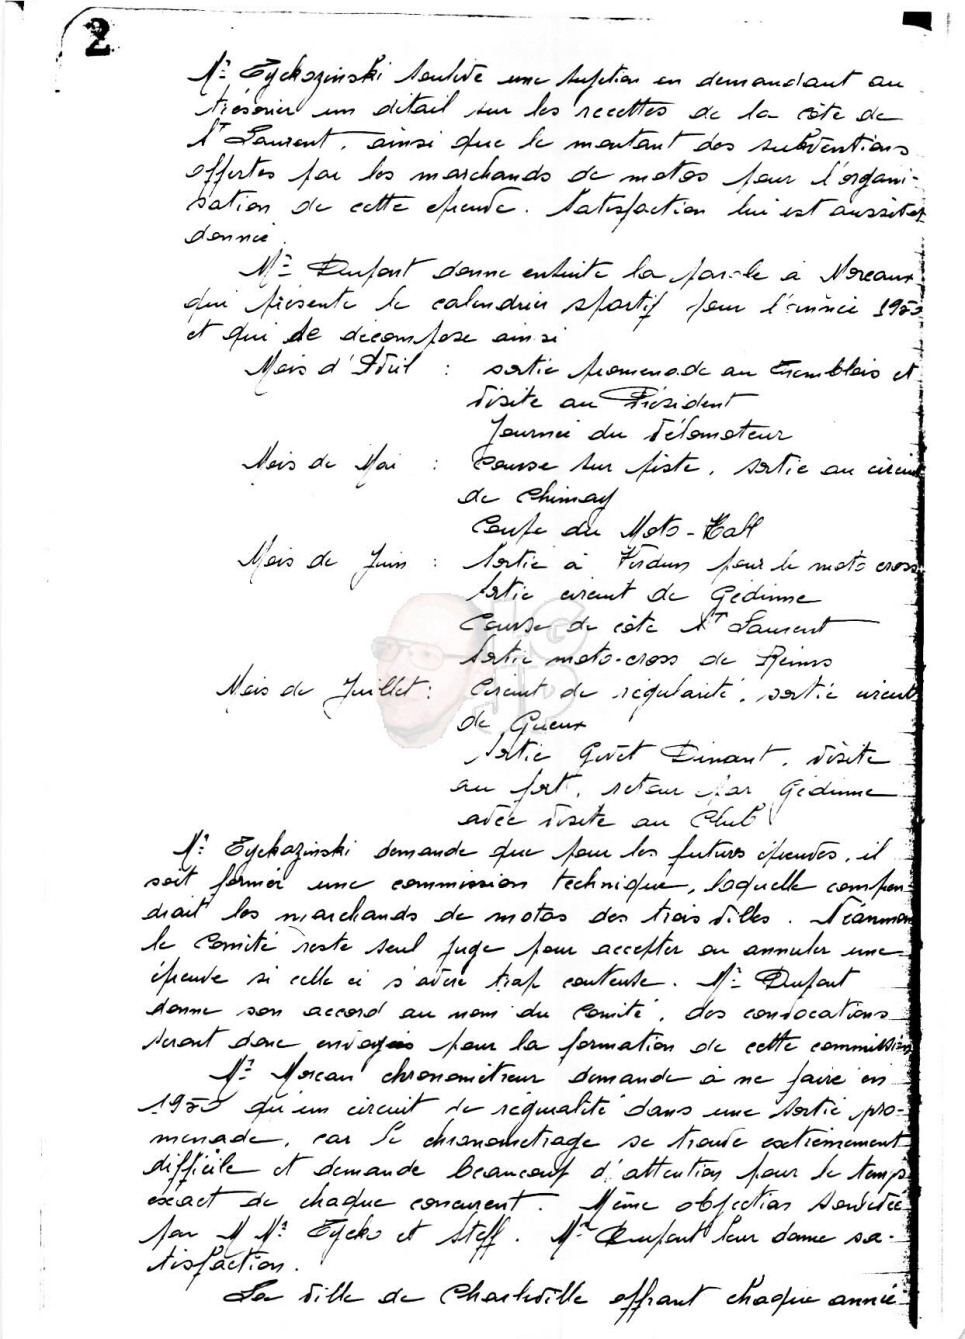 2
Mr Eyckozinski soulève une sujetion en demandant au
trésorier un détail sur les recettes de la côte de
St Laurent, ainsi que le montant des subventions
offertes par les marchands de motos pour l'organi-
sation de cette épreuve. Satisfaction lui est aussitot
donnée.
Mr Dupont donne ensuite la parole à Moreaux
qui présente le calendrier sportif pour l'année 1950
et qui se decompose ainsi
Mois d'Avril : sortie promenade au Tremblois et
visite au Président
Journée du Vélomoteur
Mois de Mai : Course sur piste, sortie au circuit
de Chimay
Coupe du Moto-Hall
Mois de Juin : Sortie à Verdun pour le moto cross
Sortie circuit de Gedinne
Course de côte St Laurent
Sortie moto-cross de Reims
Mois de Juillet : Circuit de régularité, sortie circuit
de Gueux
Sortie Givet Dinant, visite
au fort, retour par Gedinne
avec visite au Club
Mr Eyckozinski demande que pour les futures épreuves, il
soit formée une commission technique, laquelle compren-
drait les marchands de motos des trois villes. Néanmoins
le Comité reste seul juge pour accepter ou annuler une
épreuve si celle ci s'avère trop couteuse. Mr Dupont
donne son accord au nom du Comité, des convocations
seront donc envoyées pour la formation de cette commission
Mr Moreau chronométreur demande à ne faire en
1950 qu'un circuit de régularité dans une sortie pro-
menade, car le chronometrage se trouve extrèmement
difficile et demande beaucoup d'attention pour le temps
exact de chaque concurrent. Même objection soulevée
par M Mrs Eycko et Steff. Mr Dupont leur donne sa-
tisfaction.
La ville de Charleville offrant chaque année